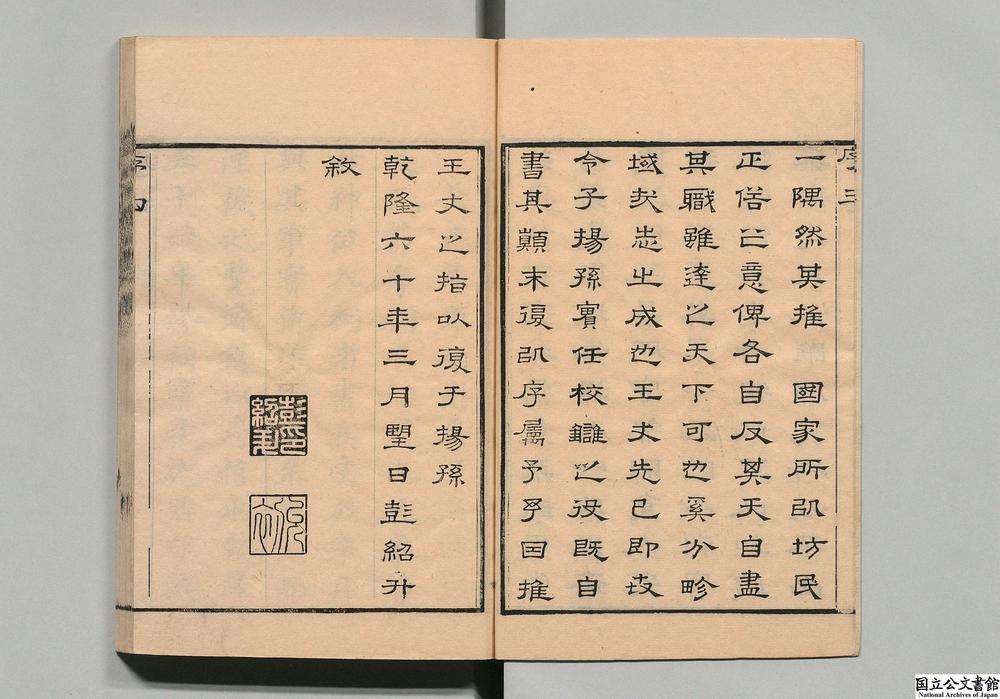 序 三
一隅然其推 國家所以坊民
正俗之意俾各自反其天自盡
其職雖達之天下可也奚分畛
域哉志之成也王丈先已即世
令子揚孫實任校讎之役既自
書其顛末復以序屬予予因推
王丈之指以復于揚孫
乾隆六十年三月望日彭紹升
敘
彭紹升印
序 四
国立公文書館
National Archives of Japan